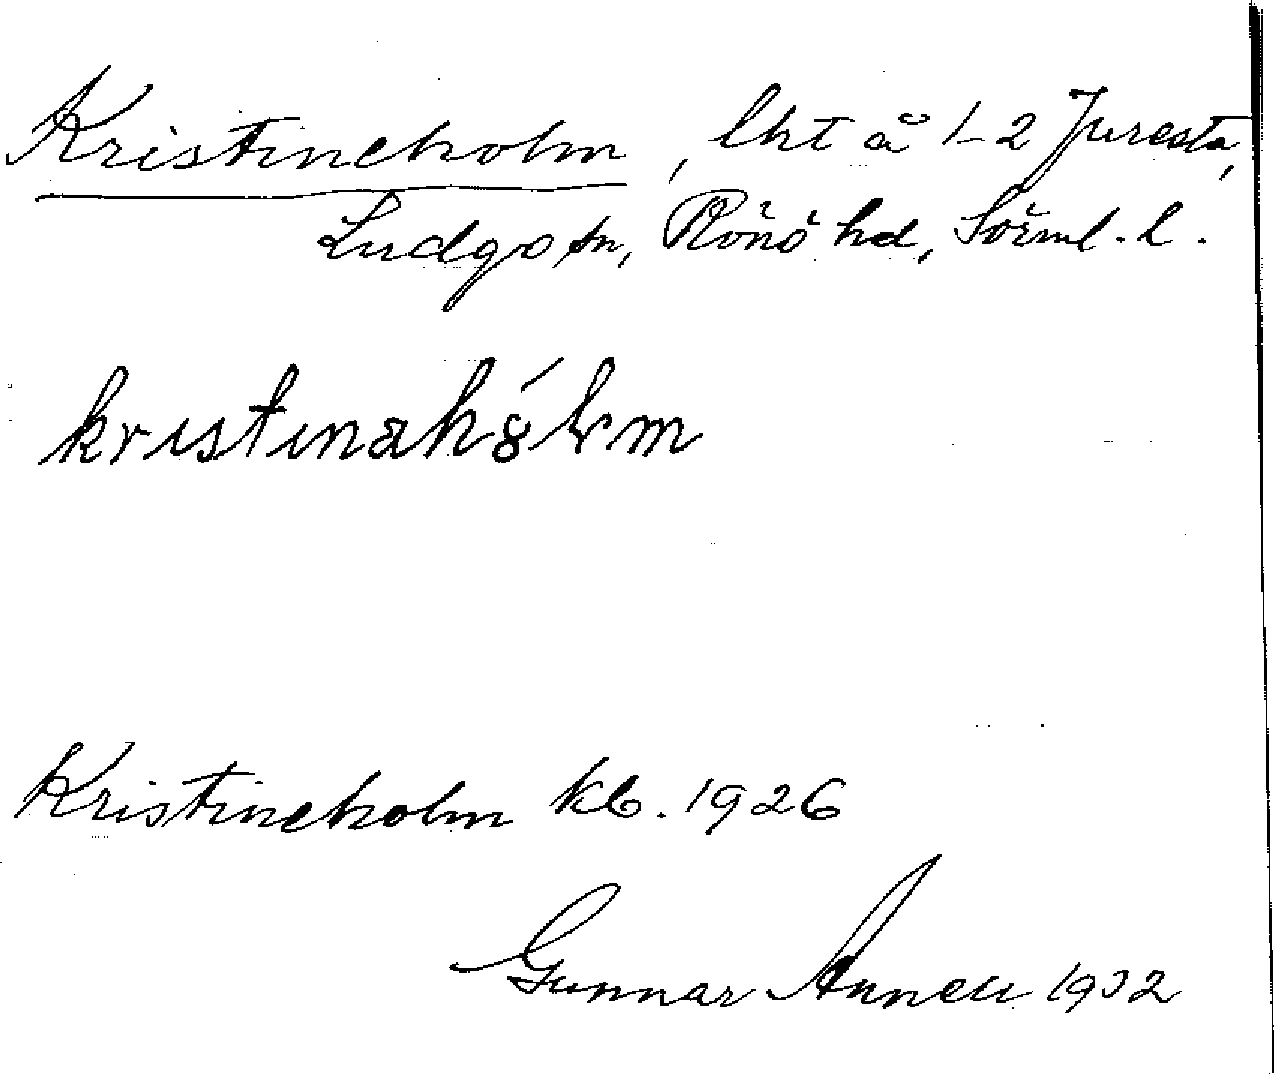 Kristineholm, lht å 1-2 Juresta,
Ludgo sn, Rönö hd, Sörml. l.
kristinahȣ́lm
Kristineholm kb. 1926
Gunnar Annell 1932